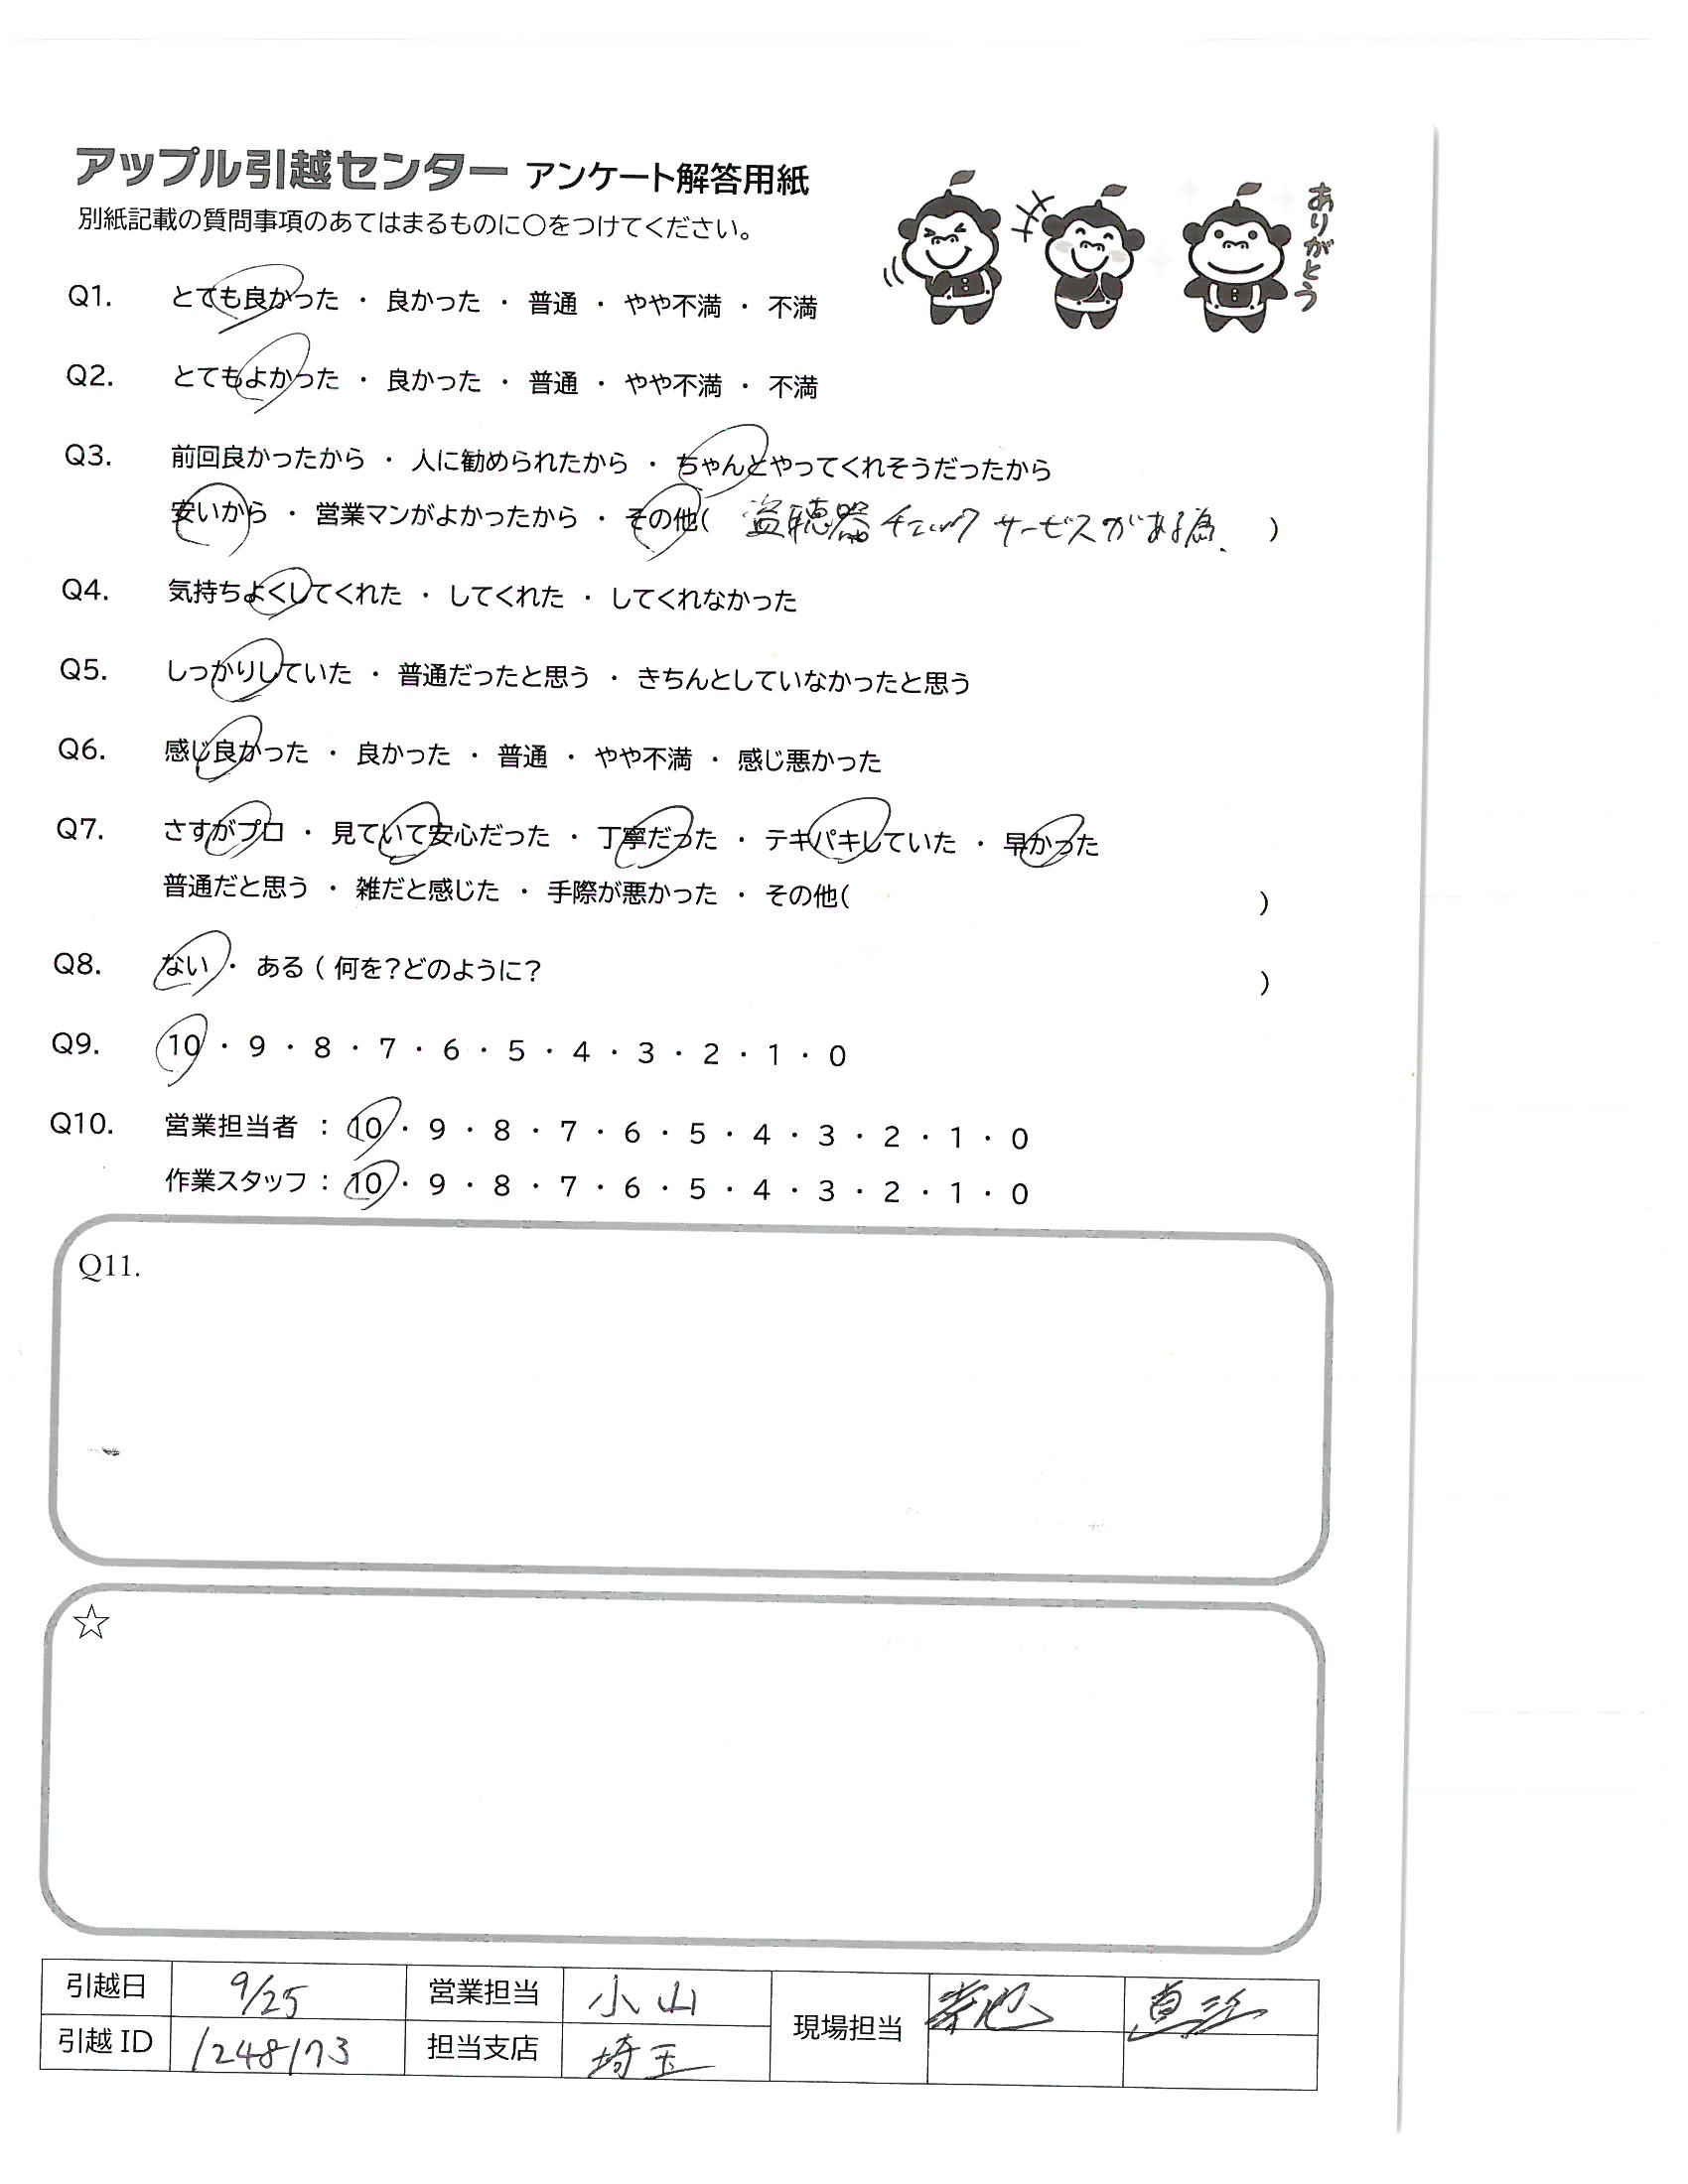 アップル引越センター アンケート解答用紙
別紙記載の質問事項のあてはまるものに〇をつけてください。
ありがとう
Q1. とても良かった ・ 良かった ・ 普通 ・ やや不満 ・ 不満
Q2. とてもよかった ・ 良かった ・ 普通 ・ やや不満 ・ 不満
Q3. 前回良かったから ・ 人に勧められたから ・ ちゃんとやってくれそうだったから
安いから ・ 営業マンがよかったから ・ その他( 盗聴器チェックサービスがある為、 )
Q4. 気持ちよくしてくれた ・ してくれた ・ してくれなかった
Q5. しっかりしていた ・ 普通だったと思う ・ きちんとしていなかったと思う
Q6. 感じ良かった ・ 良かった ・ 普通 ・ やや不満 ・ 感じ悪かった
Q7. さすがプロ ・ 見ていて安心だった ・ 丁寧だった ・ テキパキしていた ・ 早かった
普通だと思う ・ 雑だと感じた ・ 手際が悪かった ・ その他( )
Q8. ない ・ ある ( 何を?どのように? )
Q9. 10 ・ 9 ・ 8 ・ 7 ・ 6 ・ 5 ・ 4 ・ 3 ・ 2 ・ 1 ・ 0
Q10. 営業担当者 : 10 ・ 9 ・ 8 ・ 7 ・ 6 ・ 5 ・ 4 ・ 3 ・ 2 ・ 1 ・ 0
作業スタッフ : 10 ・ 9 ・ 8 ・ 7 ・ 6 ・ 5 ・ 4 ・ 3 ・ 2 ・ 1 ・ 0
Q11.
☆
引越日 9/25 営業担当 小山 現場担当
引越 ID 1248173 担当支店 埼玉